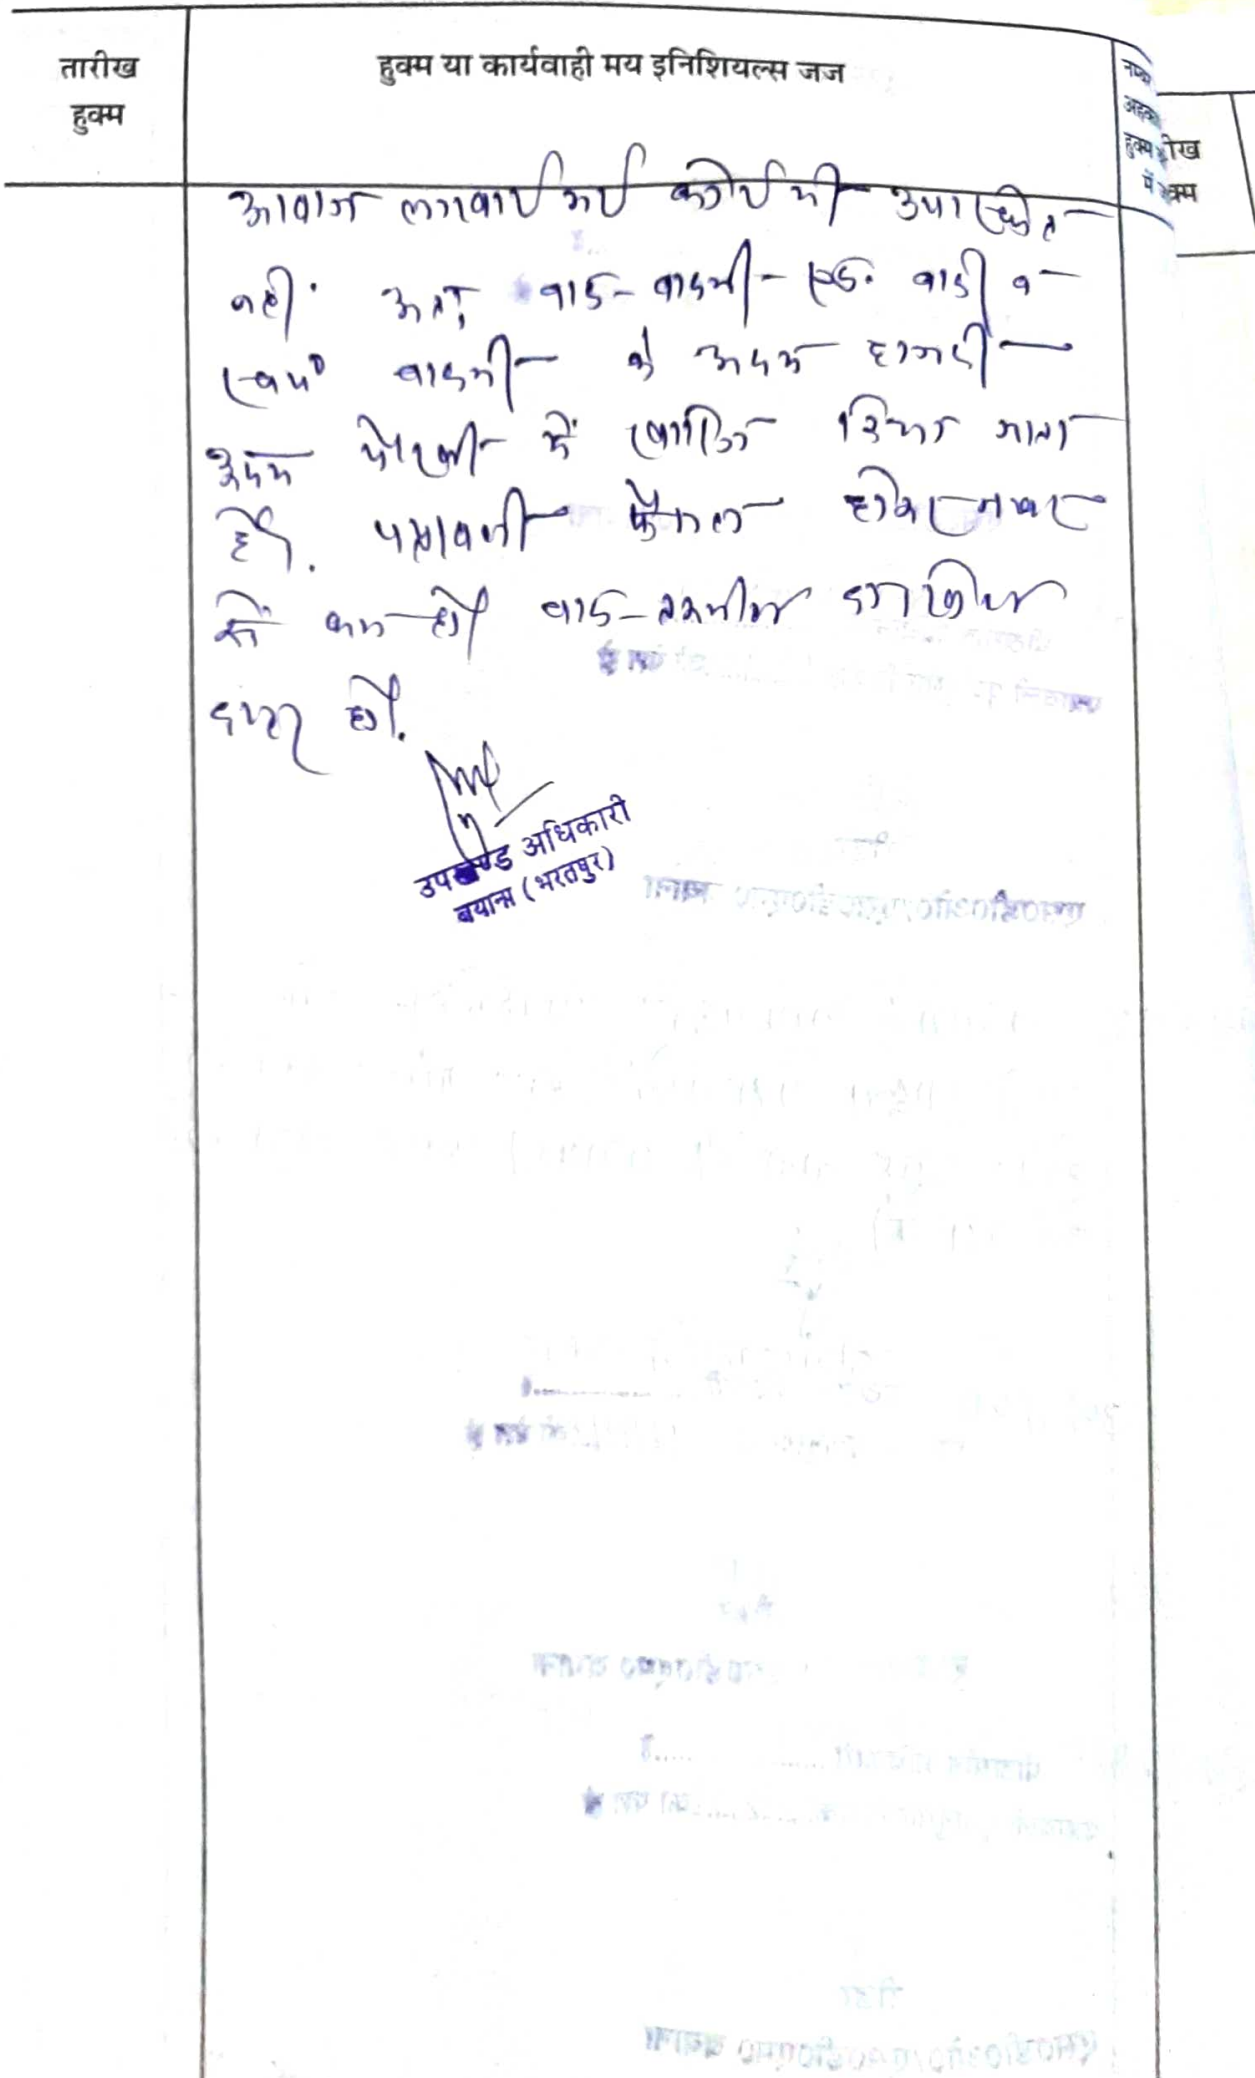 तारीख
हुक्म
हुक्म या कार्यवाही मय इनिशियल्स जज
आवाज लगवाई गई कोई भी उपस्थित
नहीं. अतः वाद वादनी एड. वादी व
स्वयं वादनी के अदम हाजरी
अदम पैरवी में खारिज किया जाता
है. पत्रावली फैसल होकर नम्बर
से कम हो वाद तकमील दाखिल
दफ्तर हो.
उपखण्ड अधिकारी
बयाना (भरतपुर)